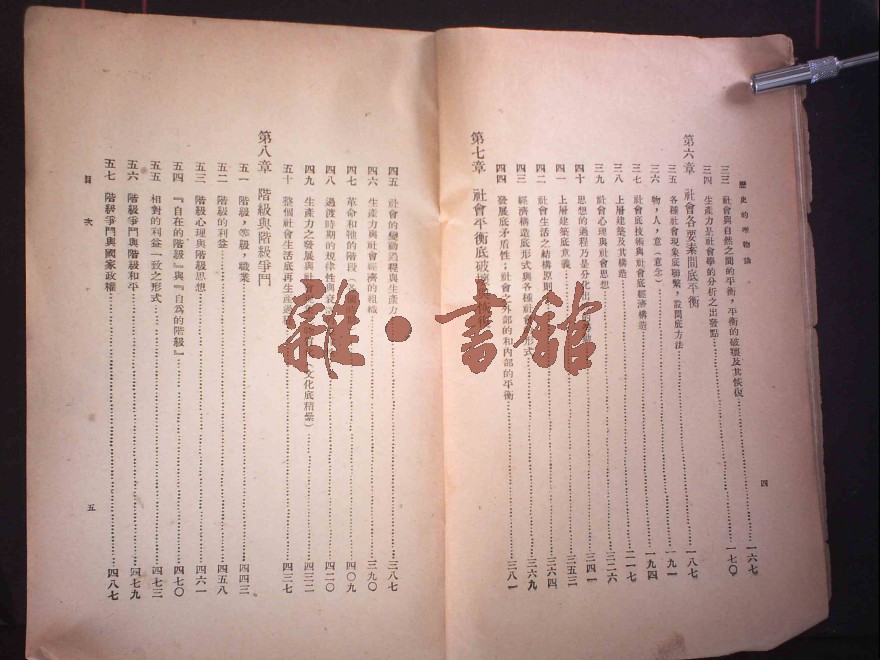 歷史的唯物論
三三 社會與自然之間的平衡,平衡的破壞及其恢復……一六七
三四 生產力是社會學的分析之出發點……一七〇
第六章 社會各要素間底平衡
三五 各種社會現象底聯繫,設問底方法……一八七
三六 物,人,意(意念)……一九一
三七 社會底技術與社會底經濟構造……一九四
三八 上層建築及其構造……二一七
三九 社會心理與社會思想……三二六
四十 思想的過程乃是分化出……三四一
四一 上層建築底意義……三五三
四二 社會生活之結構原則……三六四
四三 經濟構造底形式與各種社會……形式……三六九
四四 發展底矛盾性;社會之外部的和內部的平衡……三八一
第七章 社會平衡底破壞與恢復
四
四五 社會的變動過程與生產力……三八七
四六 生產力與社會經濟的組織……三九〇
四七 革命和牠的階段……四〇九
四八 過渡時期的規律性與衰……四二〇
四九 生產力之發展與社會……(文化底精纍)……四三二
五十 整個社會生活底再生產過程……四三七
第八章 階級與階級爭鬥
五一 階級,等級,職業……四四三
五二 階級的利益……四五八
五三 階級心理與階級思想……四六一
五四 『自在的階級』與『自爲的階級』……四七〇
五五 相對的利益一致之形式……四七三
五六 階級爭鬥與階級和平……四七九
五七 階級爭鬥與國家政權……四八七
目次
五
雜·書館